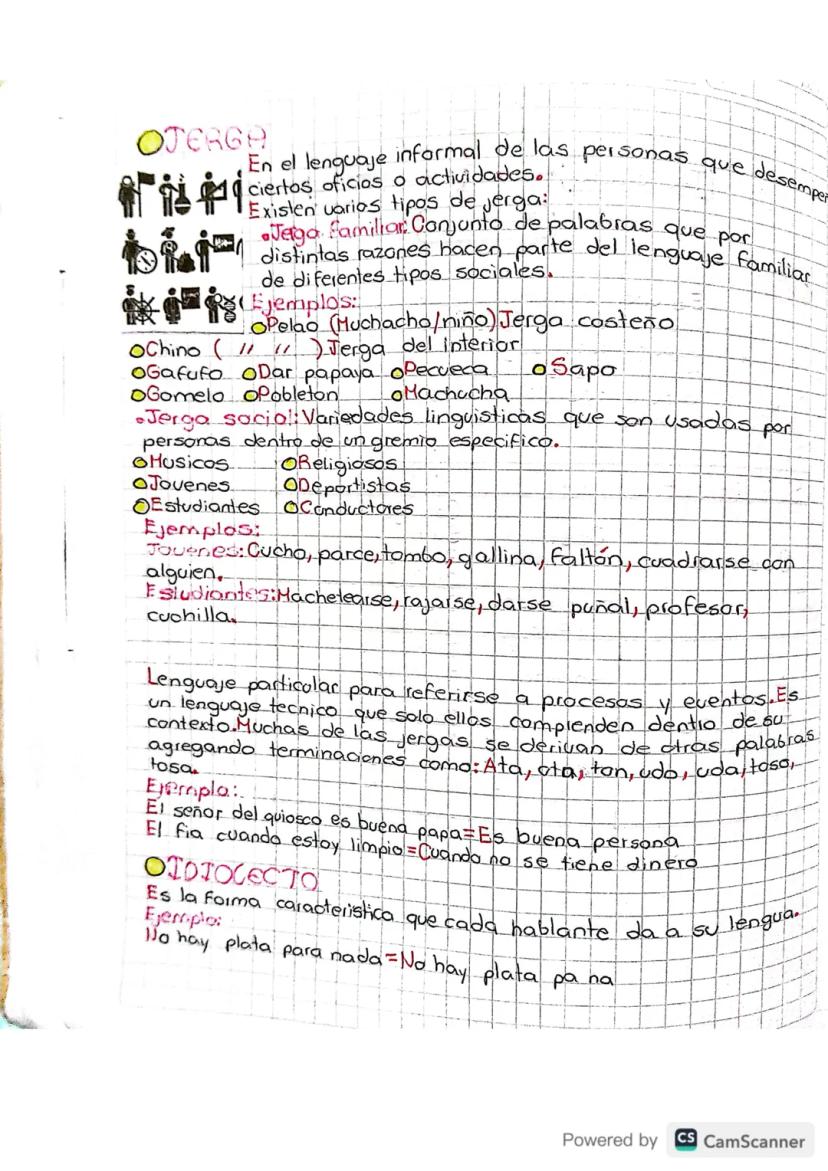 JERGA
En el lenguaje informal de las personas que desempeñ
ciertos oficios o actividades.
Existen varios tipos de jerga:
Jega familiar: Conjunto de palabras que por
distintas razones hacen parte del lenguaje familiar
de diferentes tipos sociales.
Ejemplos:
Pelao (Muchacho/niño) Jerga costeño
Chino ( " " ) Jerga del interior
Gafufo Dar papaya Pecueca Sapo
Gomelo Pobleton Machucha
Jerga social: Variedades linguisticas que son usadas por
personas dentro de un gremio especifico.
Musicos Religiosos
Jovenes Deportistas
Estudiantes Conductores
Ejemplos:
Jovenes: Cucho, parce, tombo, gallina, faltón, cuadrarse con
alguien.
Estudiantes: Machetearse, rajarse, darse puñal, profesor,
cuchilla.
Lenguaje particular para referirse a procesos y eventos. Es
un lenguaje tecnico que solo ellos comprenden dentro de su
contexto. Muchas de las jergas se derivan de otras palabras
agregando terminaciones como: Ata, ota, ton, udo, uda, toso,
tosa.
Ejemplo:
El señor del quiosco es buena papa = Es buena persona
El fia cuando estoy limpio = Cuando no se tiene dinero
IDIOLECTO
Es la forma caracteristica que cada hablante da a su lengua.
Ejemplo:
No hay plata para nada = No hay plata pa na
Powered by CS CamScanner